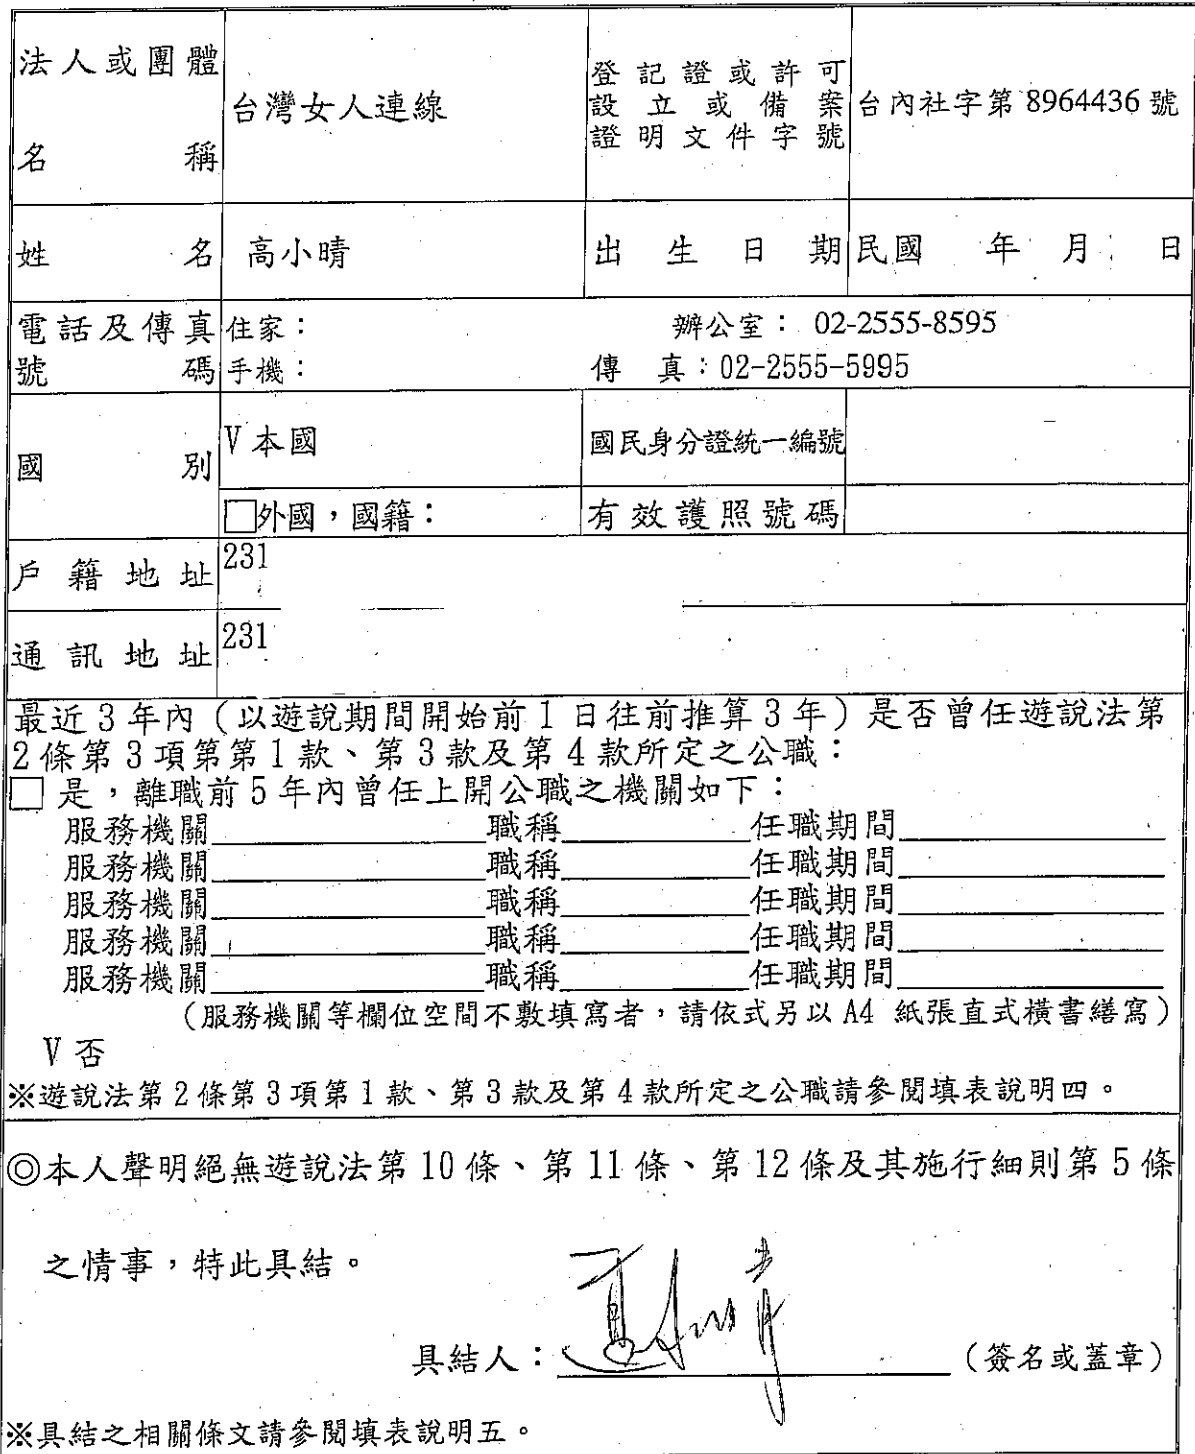 法人或團體名稱 台灣女人連線 登記證或許可設立或備案證明文件字號 台內社字第 8964436 號
姓名 高小晴 出生日期 民國 年 月 日
電話及傳真號碼 住家： 辦公室： 02-2555-8595
手機： 傳 真：02-2555-5995
國別 V 本國 國民身分證統一編號
□外國，國籍： 有效護照號碼
戶籍地址 231
通訊地址 231
最近 3 年內（以遊說期間開始前 1 日往前推算 3 年）是否曾任遊說法第
2 條第 3 項第第 1 款、第 3 款及第 4 款所定之公職：
□ 是，離職前 5 年內曾任上開公職之機關如下：
服務機關 職稱 任職期間
服務機關 職稱 任職期間
服務機關 職稱 任職期間
服務機關 職稱 任職期間
服務機關 職稱 任職期間
（服務機關等欄位空間不敷填寫者，請依式另以 A4 紙張直式橫書繕寫）
V 否
※遊說法第 2 條第 3 項第 1 款、第 3 款及第 4 款所定之公職請參閱填表說明四。
◎本人聲明絕無遊說法第 10 條、第 11 條、第 12 條及其施行細則第 5 條
之情事，特此具結。
具結人：高小晴（簽名或蓋章）
※具結之相關條文請參閱填表說明五。